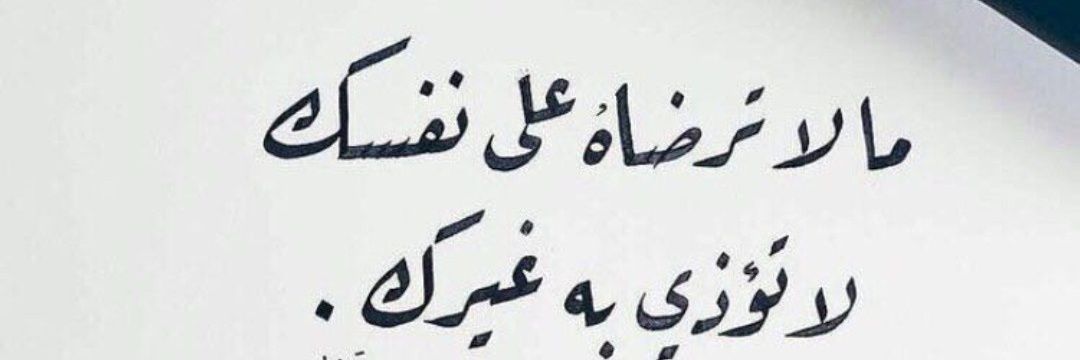 ما لا ترضاهُ على نفسك
لا تؤذي به غيرك .